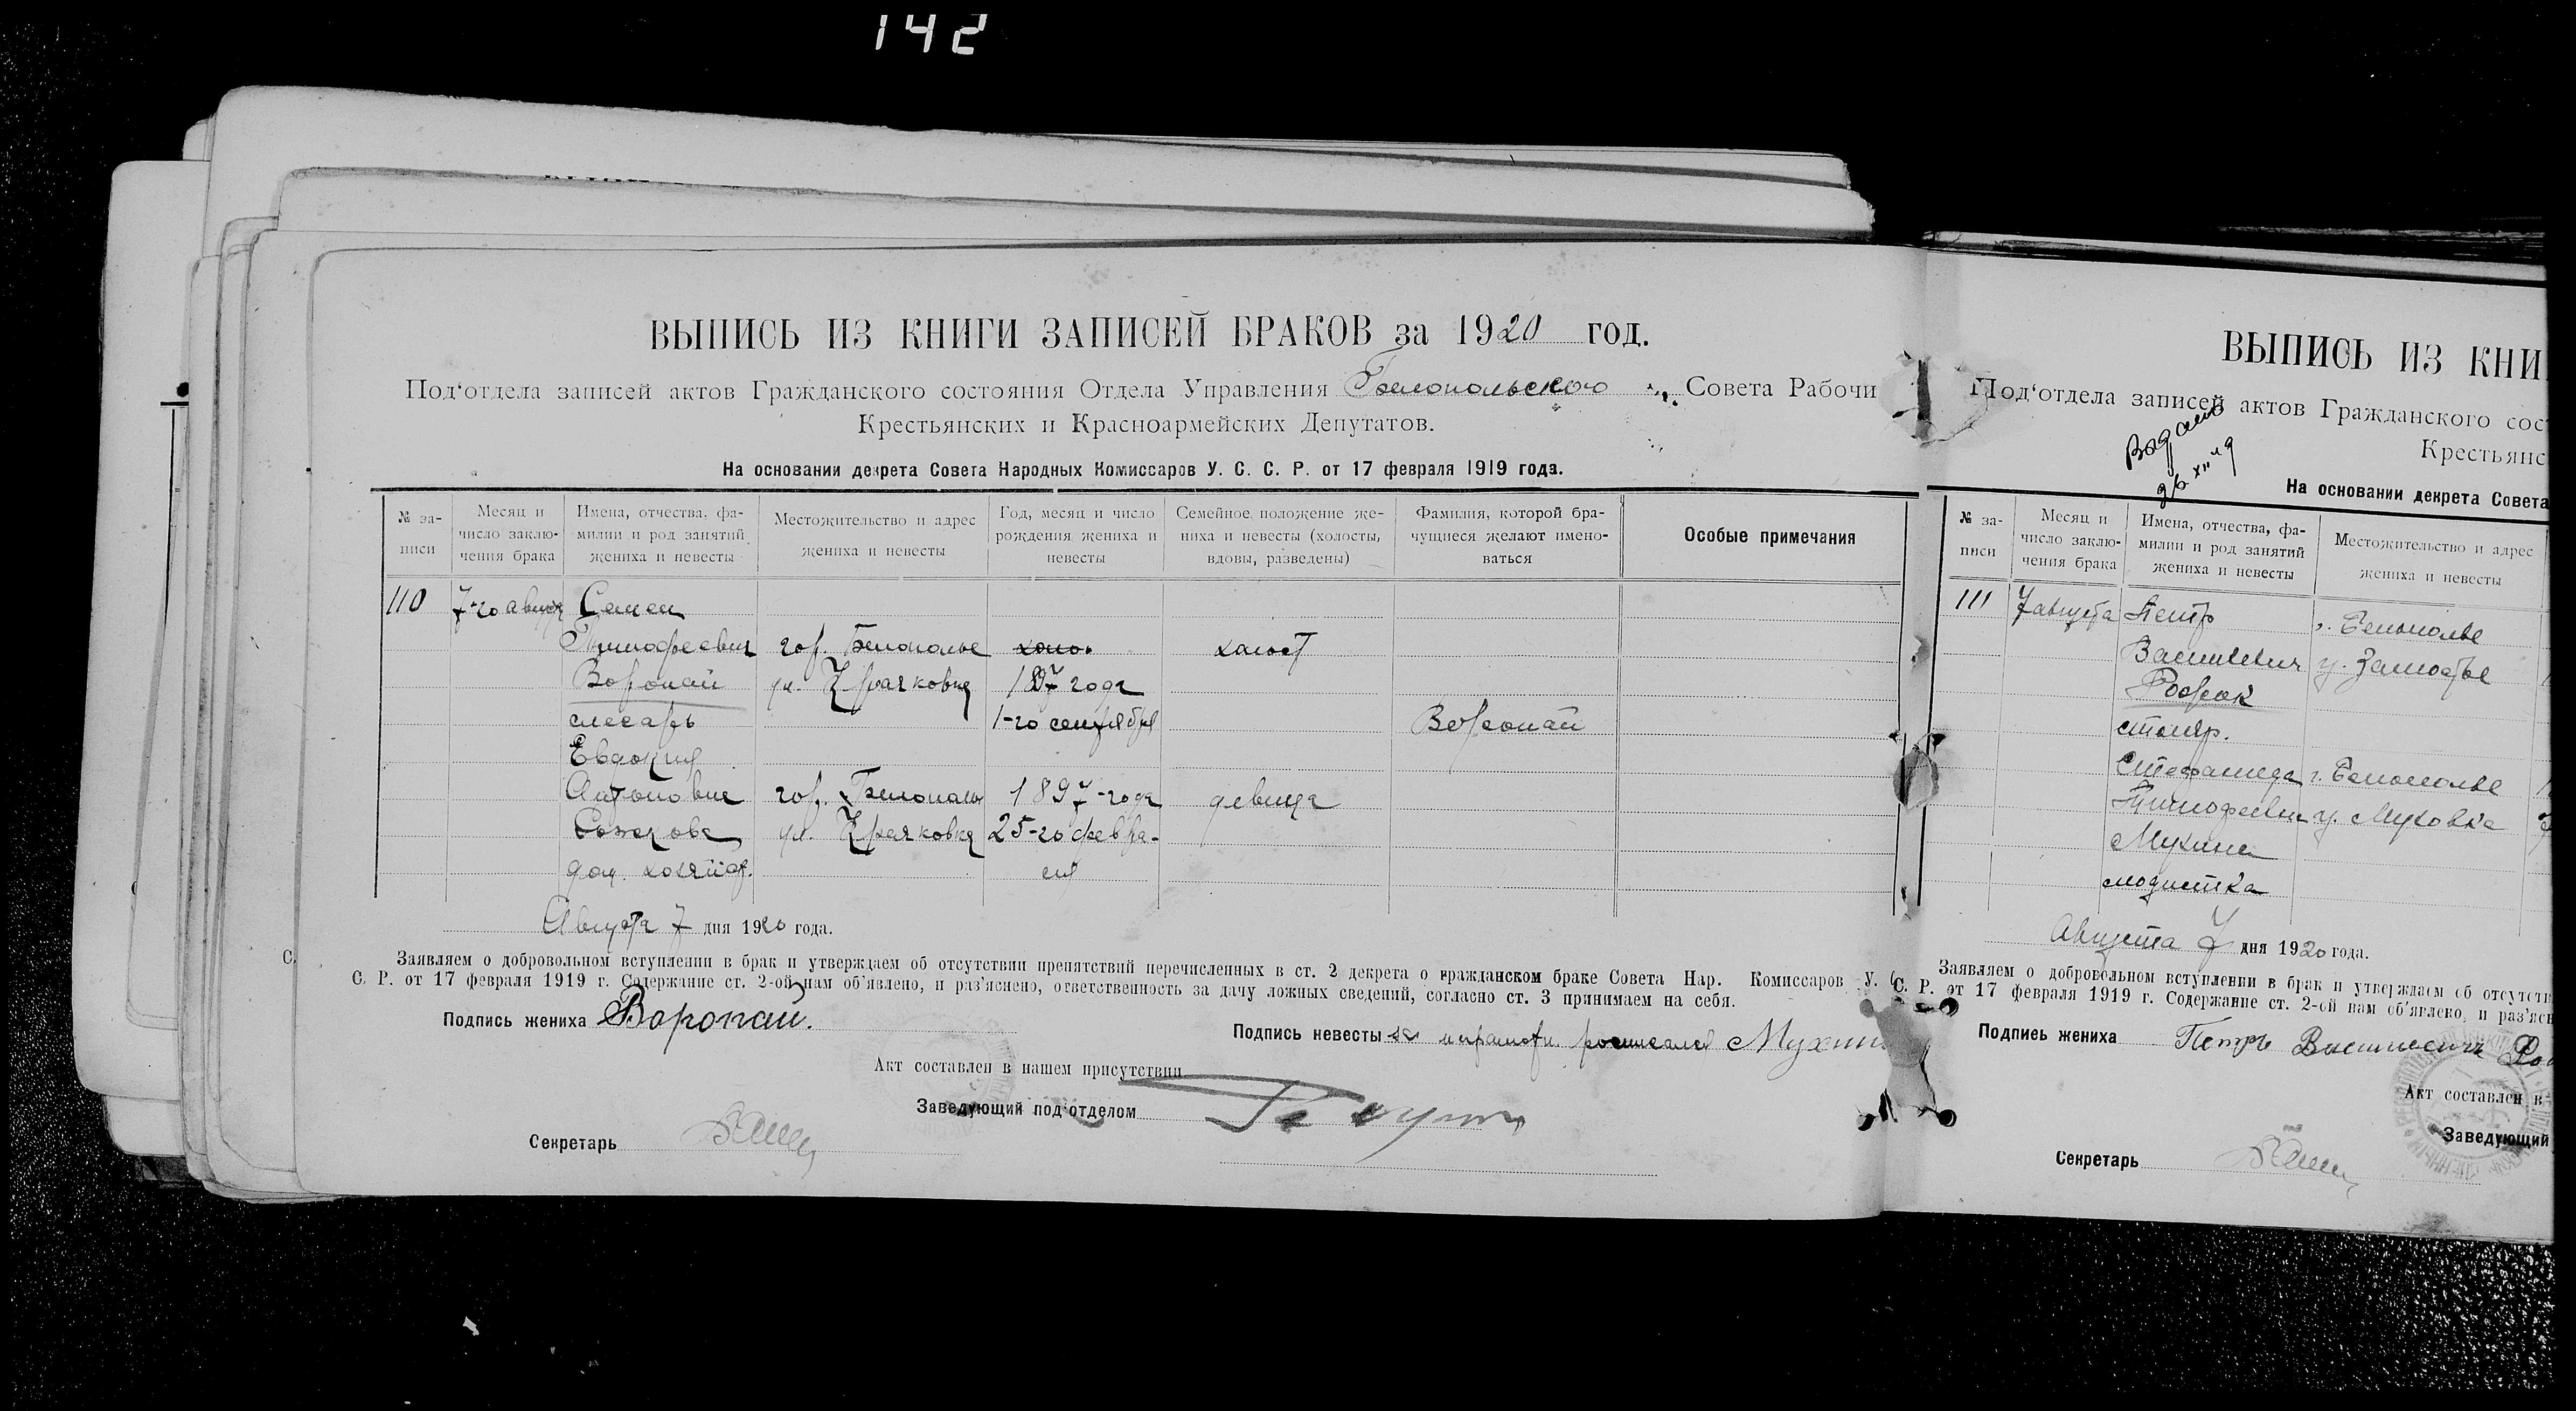 142
ВЫПИСЬ ИЗ КНИГИ ЗАПИСЕЙ БРАКОВ за 1920 год.
Под‘отдела записей актов Гражданского состояния Отдела Управления Белопольского Совета Рабочи
Крестьянских и Красноармейских Депутатов.
На основании декрета Совета Народных Комиссаров У. С. С. Р. от 17 февраля 1919 года.
№ за-писи
Месяц и число заклю-чения брака
Имена, отчества, фа-милии и род занятий жениха и невесты
Местожительство и адрес жениха и невесты
Год, месяц и число рождения жениха и невесты
Семейное положение же-ниха и невесты (холосты, вдовы, разведены)
Фамилия, которой бра-чущиеся желают имено-ваться
Особые примечания
110 7-го август Семен
Тимофеевич гор. Белополье холост
Воропай ул. Крачковка 1897 года
слесарь 1-го сентября Воропай
Евдокия
Антоновна гор. Белополье 1897-года девица
ул. Крачковка 25-го февра-
дом. хозяйст. ля
Августа 7 дня 1920 года.
С. Заявляем о добровольном вступлении в брак и утверждаем об отсутствии препятствий перечисленных в ст. 2 декрета о гражданском браке Совета Нар. Комиссаров У. С.
С. Р. от 17 февраля 1919 г. Содержание ст. 2-ой нам об‘явлено, и раз‘яснено, ответственность за дачу ложных сведений, согласно ст. 3 принимаем на себя.
Подпись жениха Воропай.
Подпись невесты за неграмотн. росписался Мухин
Акт составлен в нашем присутствии
Заведующий под‘отделом
Секретарь
ВЫПИСЬ ИЗ КНИ
Под‘отдела записей актов Гражданского сос
Крестьянс
Выдано
На основании декрета Совета
№ за-писи
Месяц и число заклю-чения брака
Имена, отчества, фа-милии и род занятий жениха и невесты
Местожительство и адрес жениха и невесты
111 7 августа Петр г. Белополье
Васильевич у. Замостье
столяр.
Степанида г. Белополье
Тимофеевна у. Муховка
Мухина
модистка
Августа 7 дня 1920 года.
Заявляем о добровольном вступлении в брак и утверждаем об отсутств
С. Р. от 17 февраля 1919 г. Содержание ст. 2-ой нам об‘явлено, и раз‘ясн
Подпись жениха Петръ Васильевичъ
Акт составлен в
Заведующий
Секретарь